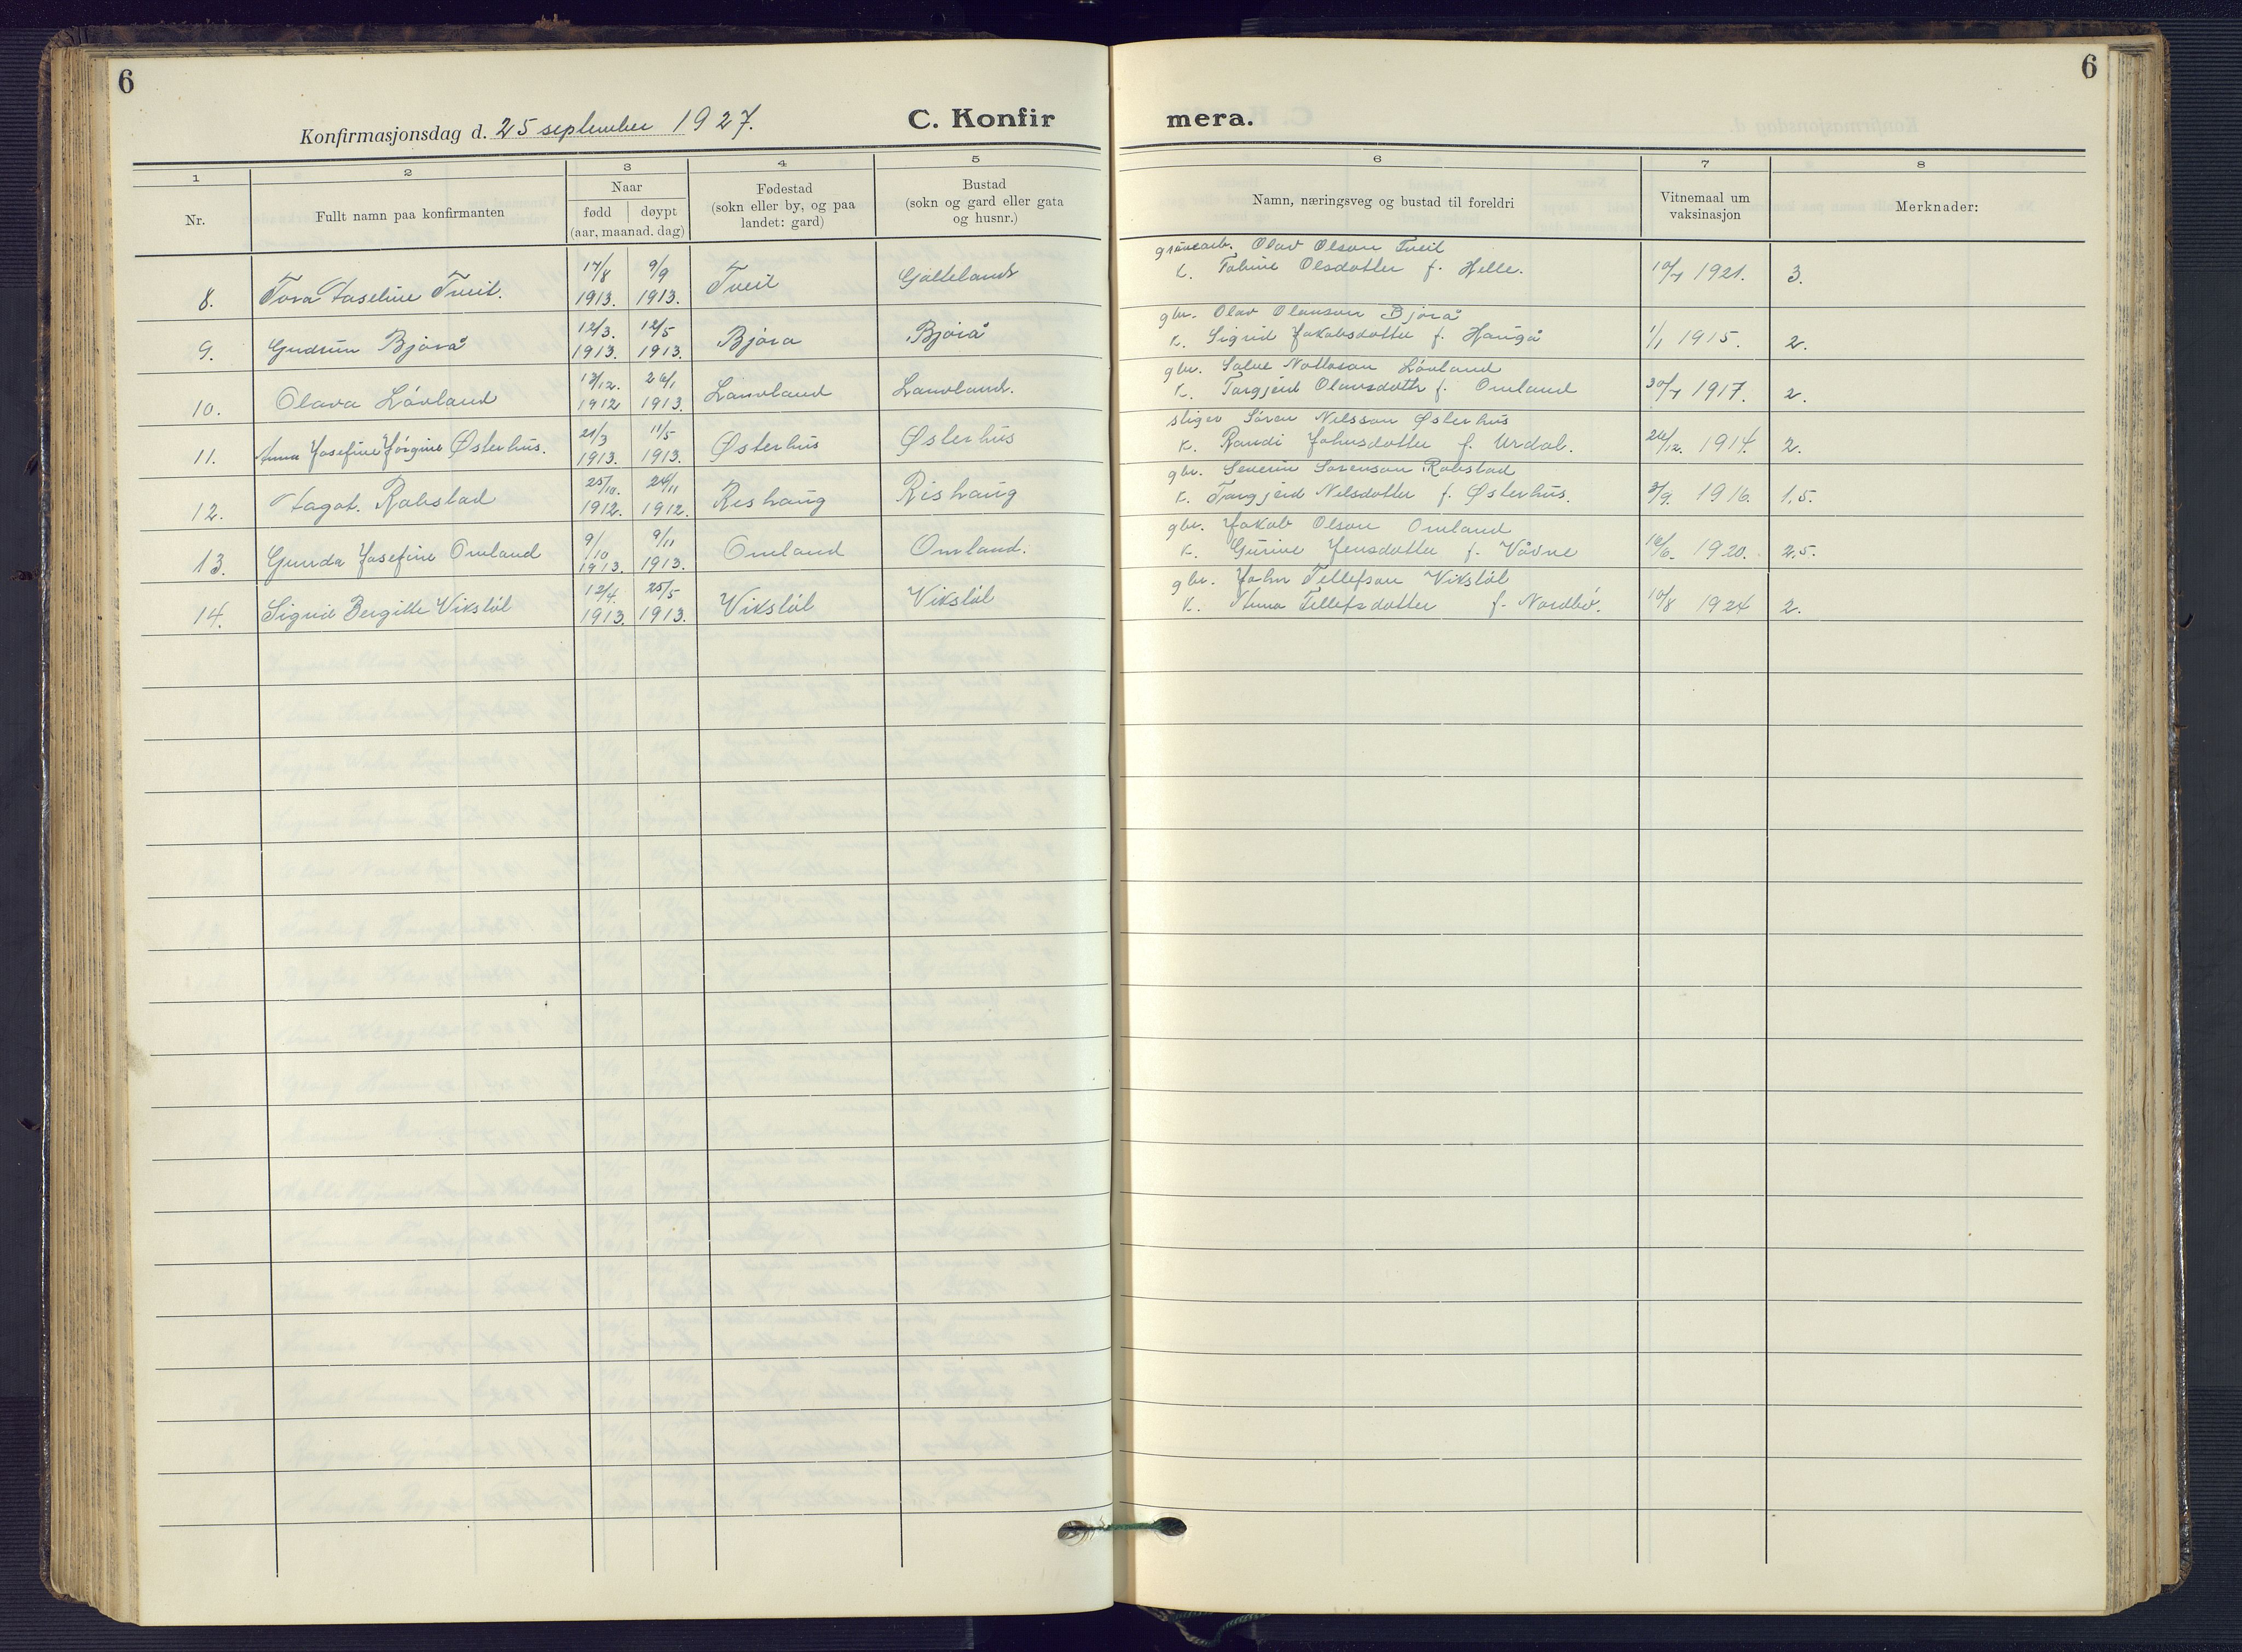 6
6
Konfirmasjonsdag d. 25 september 1927.
C. Konfir
mera.
1 2 3 4 5 6 7 8
Nr.
Fullt namn paa konfirmanten
Naar
født | døypt
(aar, maanad. dag)
Fødestad
(sokn eller by, og paa
landet: gard)
Bustad
(sokn og gard eller gata
og husnr.)
Namn, næringsveg og bustad til foreldri
Vitnemaal um
vaksinasjon
Merknader:
8. Tora Taseline Tveit. 17/8 1913. 9/9 1913. Tveit
gruvearb. Olav Olson Tveit
k. Tobine Olsdotter f. Helle. 10/7 1921. 3.
9. Gudrun Bjorå 12/3. 1913. 12/5 1913. Bjora Bjorå
gbr. Olav Olavson Bjorå
k. Sigrid Jakobsdotter f. Haugå 1/1 1915. 2.
10. Olava Lövland 1912 26/1 1913. Lauvland Lauvland.
gbr. Salve Lövland
k. Torgjerd Olavsdottr f. Omland 30/7 1917. 2.
11. Anna Josefine Jörgine Østerhus. 21/3 1913. 11/5 1913. Østerhus Østerhus
stiger Sören Nilsson Østerhus
k. Randi Johnsdotter f. Urdal. 26/12. 1914. 2.
12. Hagot. Robstad 25/10. 1912. 24/11 1912. Rishaug Rishaug
gbr. Severin Sørenson Robstad
k. Torgjerd Nilsdotter f. Østerhus. 3/9. 1916. 1,5.
13. Gunda Josefine Omland 9/10 1913. 9/11 1913. Omland Omland.
gbr. Jakob Olson Omland
k. Gurine Jensdotter f. Våvne 16/6. 1920. 2,5.
14. Sigrid Bergitte Vikstöl 12/4. 1913. 25/5 1913. Vikstöl Vikstöl
gbr. John Tellefson Vikstöl
k. Anna Tellefsdotter f. Nordbö. 10/8 1924 2.